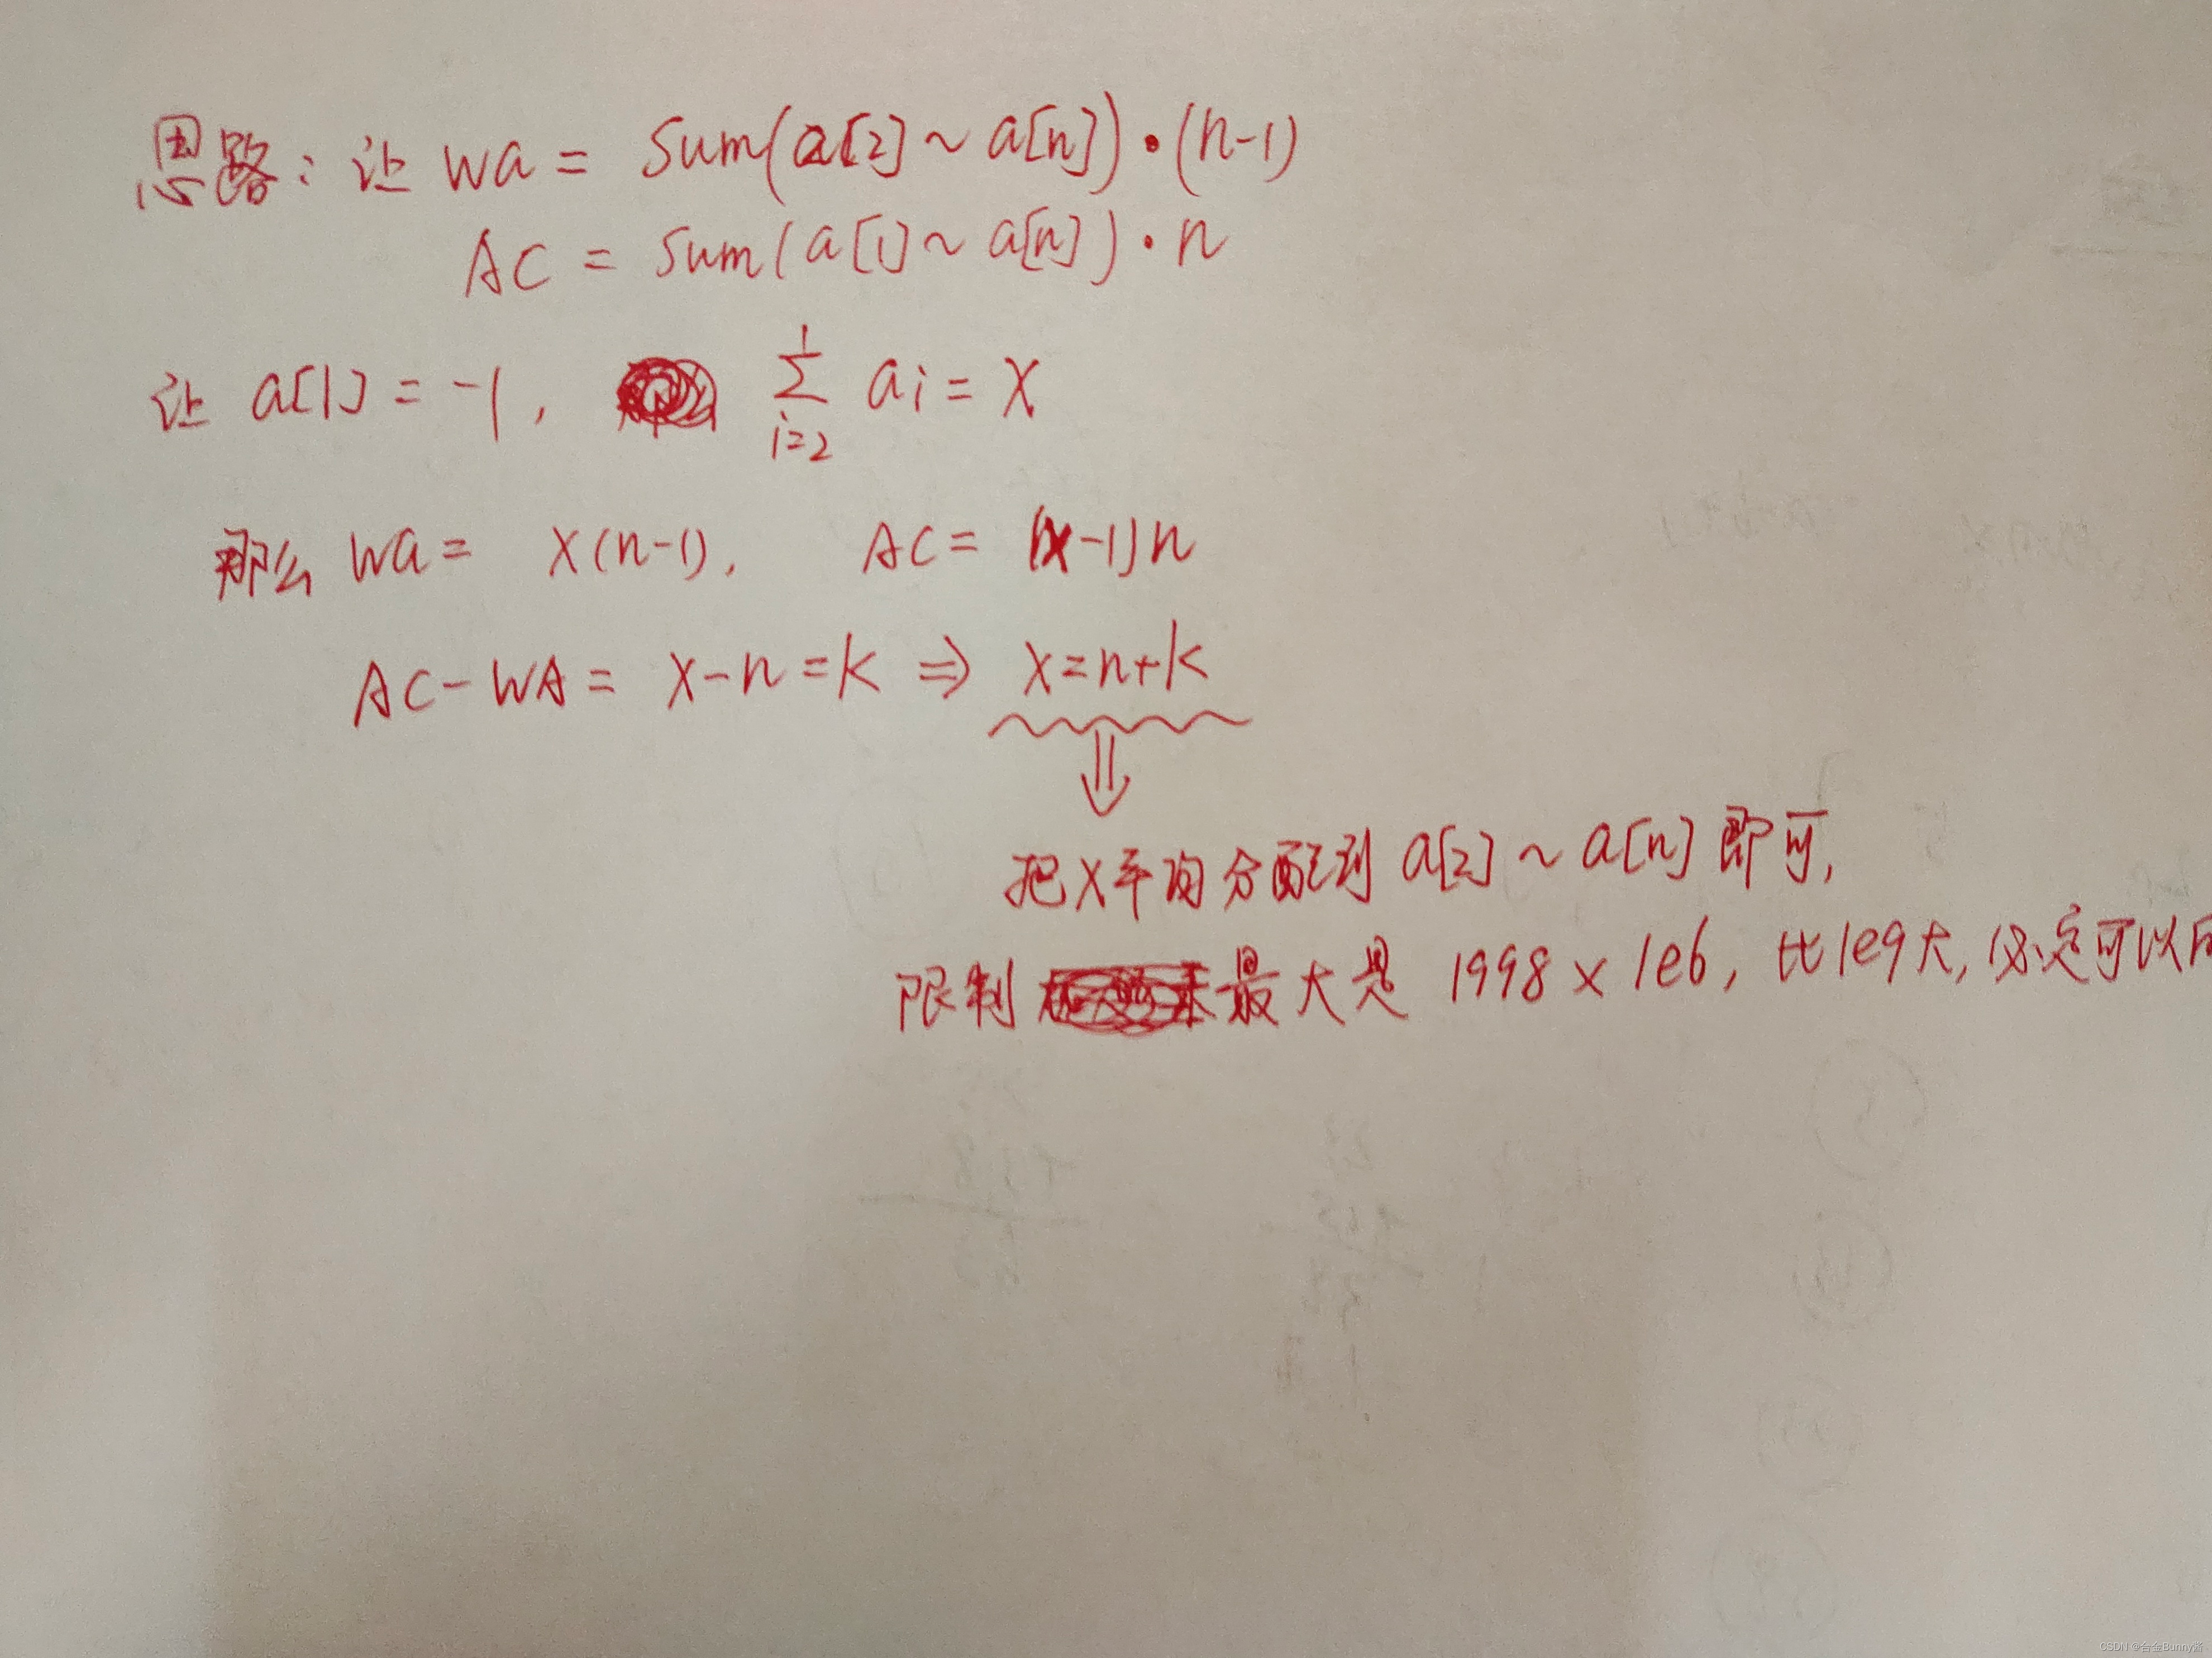 思路：让 wa = Sum(a[2] ~ a[n])·(n-1)
AC = Sum(a[1] ~ a[n])·n
让 a[1] = -1, 1∑i=2 ai = X
那么 wa = X(n-1), AC = (X-1)n
AC - WA = X-n = k ⇒ X=n+k
⇓
把X平均分配到 a[2] ~ a[n] 即可,
限制 最大是 1998 × 1e6, 比1e9大, 必定可以
CSDN @合金Bunny酱